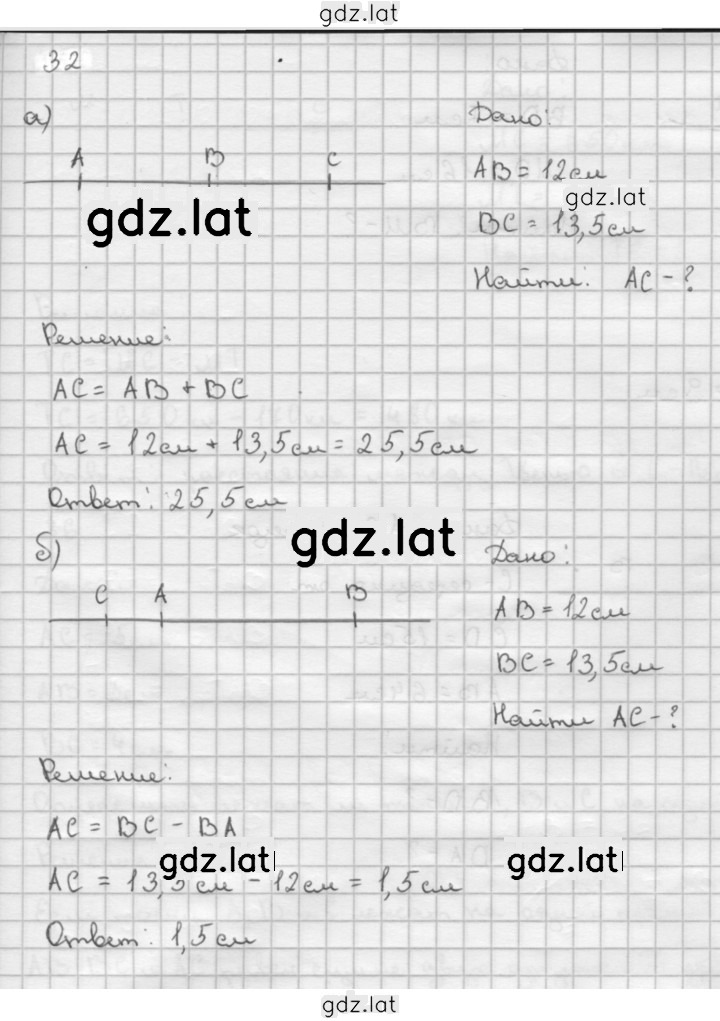 gdz.lat
32
а)
A B C
gdz.lat
Дано:
AB = 12 см
gdz.lat
BC = 13,5 см
Найти: AC - ?
Решение:
AC = AB + BC
AC = 12 см + 13,5 см = 25,5 см
Ответ: 25,5 см
gdz.lat
б)
C A B
Дано:
AB = 12 см
BC = 13,5 см
Найти AC - ?
Решение:
AC = BC - BA
gdz.lat gdz.lat
AC = 13,5 см - 12 см = 1,5 см
Ответ: 1,5 см
gdz.lat